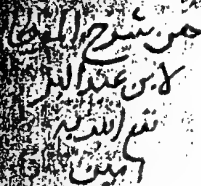 من شرح الموطأ
لابن عبد البر
نفع الله به
آمين